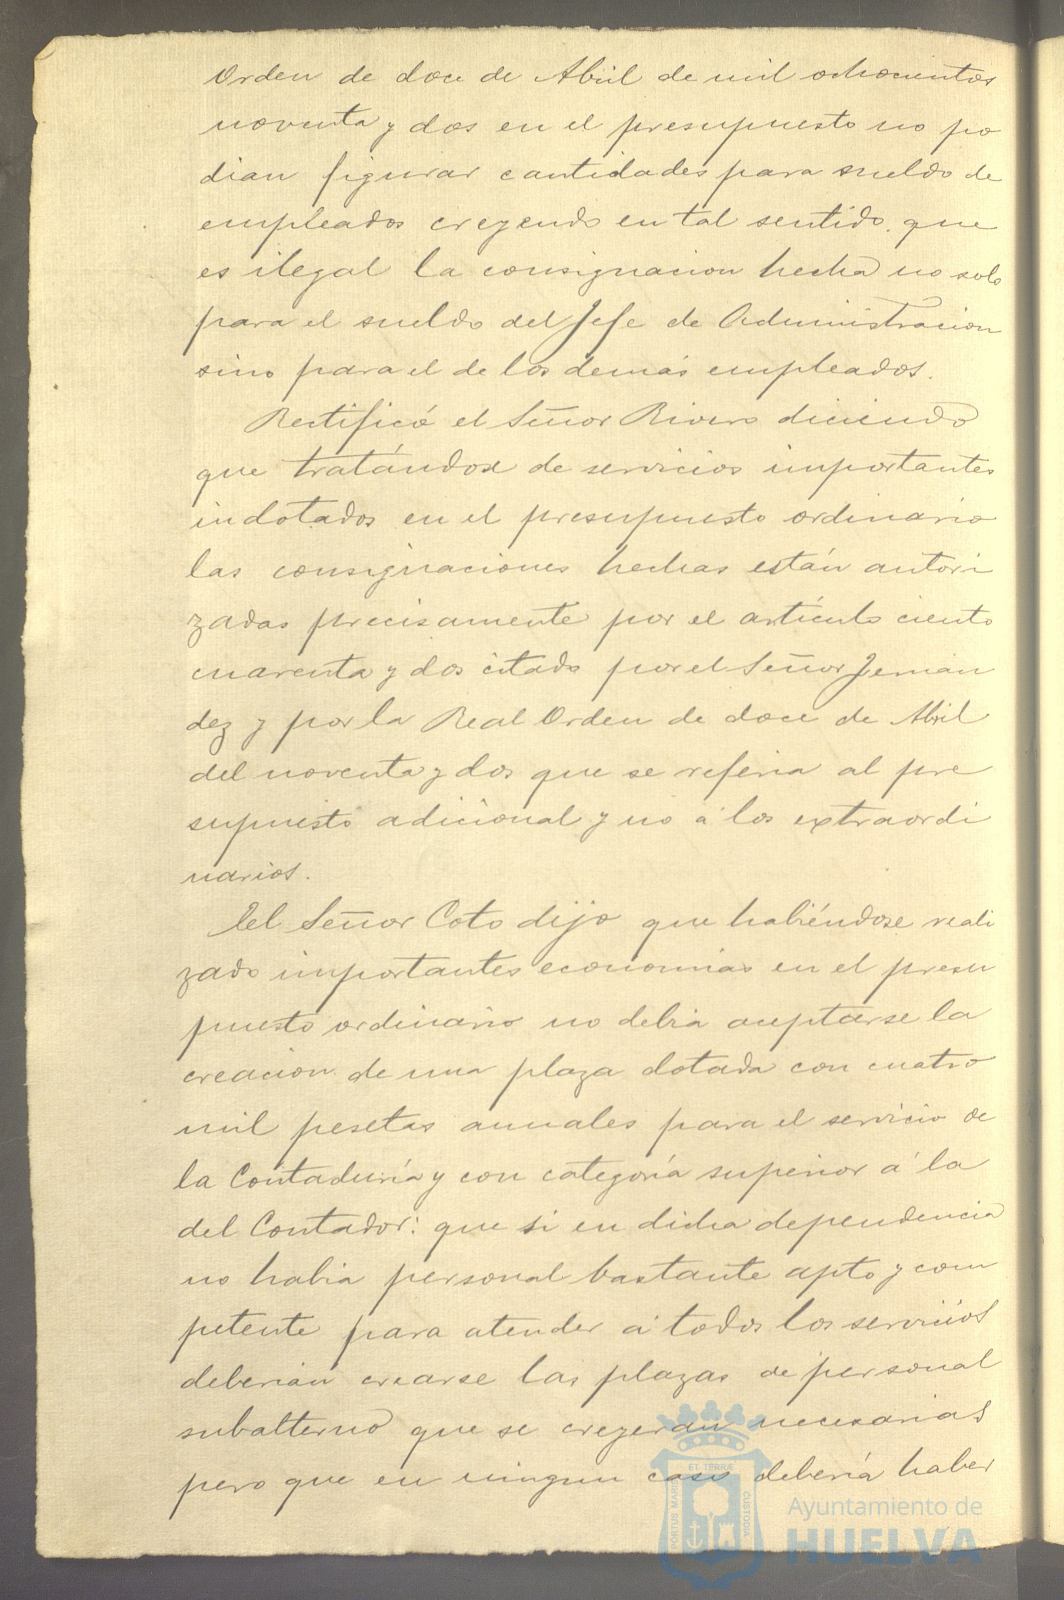 Orden de doce de Abril de mil ochocientos
noventa y dos en el presupuesto no po
dian figurar cantidades para sueldo de
empleados creyendo en tal sentido que
es ilegal la consignacion hecha no solo
para el sueldo del Jefe de Administracion
sino para el de los demás empleados.
Rectificó el Señor Rivero diciendo
que tratándose de servicios importantes
indotados en el presupuesto ordinario
las consignaciones hechas están autori
zadas precisamente por el artículo ciento
cuarenta y dos citado por el Señor Fernan
dez y por la Real Orden de doce de Abril
del noventa y dos que se referia al pre
supuesto adicional y no á los extraordi
narios.
El Señor Coto dijo que habiéndose reali
zado importantes economias en el presu
puesto ordinario no debia aceptarse la
creacion de una plaza dotada con cuatro
mil pesetas anuales para el servicio de
la Contaduría y con categoría superior á la
del Contador: que si en dicha dependencia
no habia personal bastante apto y com
petente para atender á todos los servicios
deberian crearse las plazas de personal
subalterno que se creyeran necesarias
pero que en ningun caso debería haber
PORTUS MARIS ET TERRÆ CUSTODIA
Ayuntamiento de
HUELVA